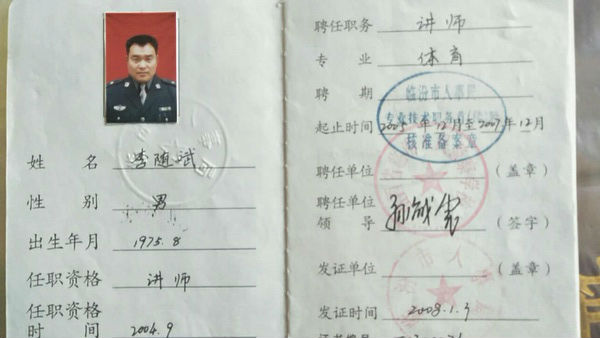 姓 名 李随斌
性 别 男
出生年月 1975.8
任职资格 讲师
任职资格
时 间 2004.9
聘任职务 讲师
专 业 体育
聘 期
临汾市人事局
专业技术职务
核准备案章
起止时间 2005年12月至2007年12月
聘任单位 (盖章)
聘任单位
领 导 (签字)
发证单位 (盖章)
临汾市人
发证时间 2008.1.3
证书编号